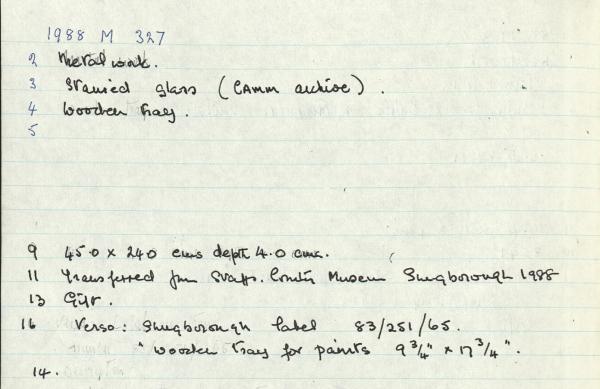 1988 M 327
2 Metalwork.
3 Stained glass (Camm archive).
4 Wooden tray.
5
9 45.0 x 24.0 cms depth 4.0 cms.
11 Transferred from Staffs. County Museum Shugborough 1988
13 Gift.
16 Verso: Shugborough label 83/251/65.
"Wooden tray for paints 9 3/4" x 17 3/4".
14.